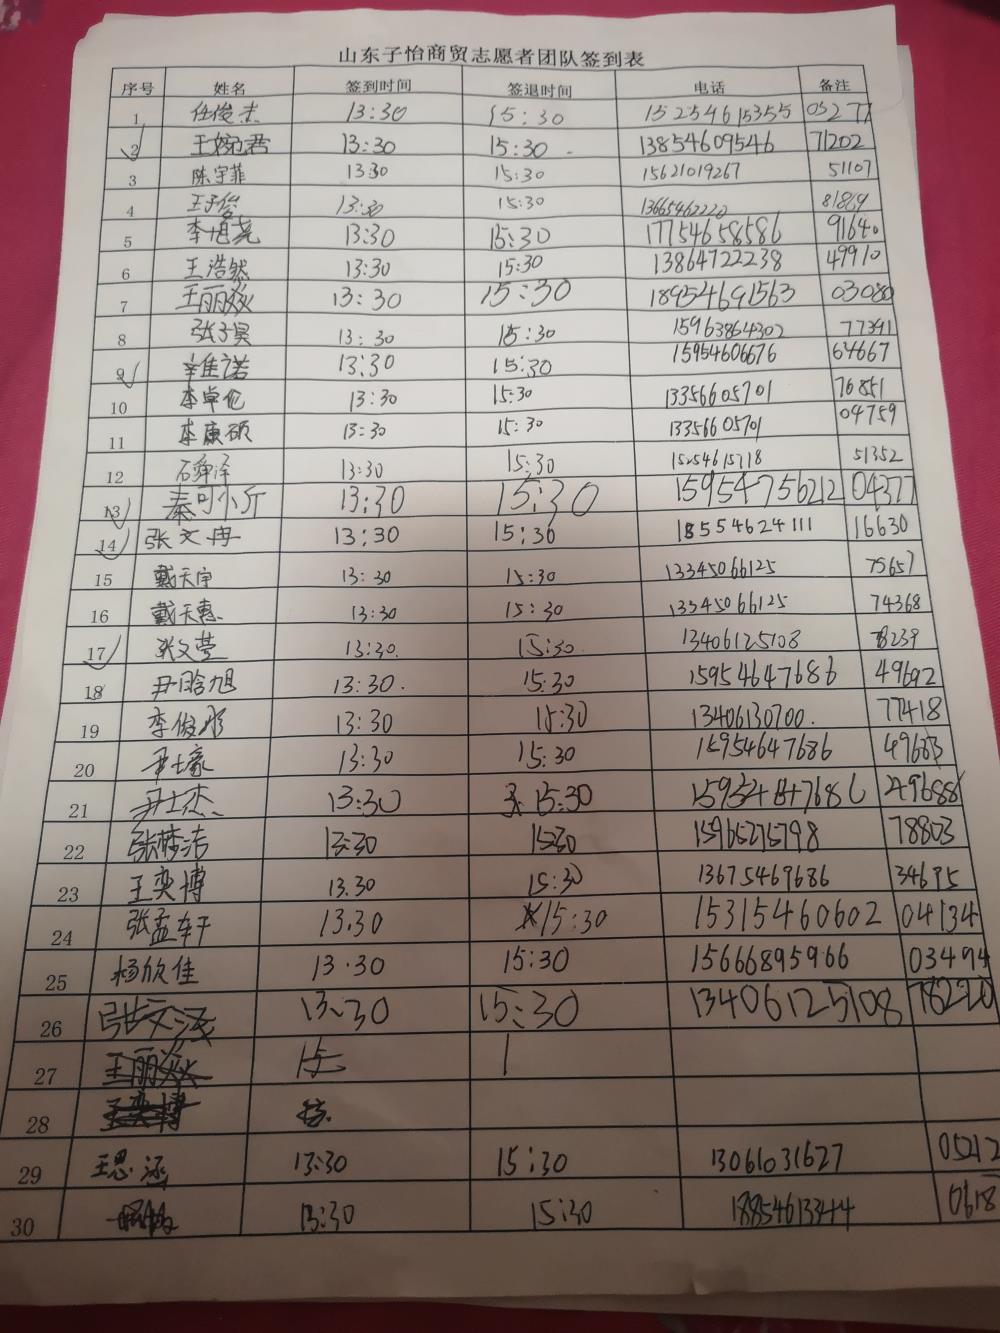 山东子怡商贸志愿者团队签到表
序号 姓名 签到时间 签退时间 电话 备注
1 任俊杰 13:30 15:30 15254615355 03277
2 王婉君 13:30 15:30 13854609546 71202
3 陈宇菲 13:30 15:30 15621019267 51107
4 王子俊 13:30 15:30 13665462220 81869
5 13:30 15:30 17754658586 91640
6 王浩然 13:30 15:30 13864722238 49910
7 王丽焱 13:30 15:30 18954691563 03080
8 张子昊 13:30 15:30 15963864302 77391
9 辛佳诺 13:30 15:30 15954606676 64667
10 李卓伦 13:30 15:30 13356605701 76851
11 李康硕 13:30 15:30 13356605701 04759
12 石舜泽 13:30 15:30 15254615718 51352
13 秦可小斤 13:30 15:30 15954756212 04377
14 张文冉 13:30 15:30 18554624111 16630
15 戴天宇 13:30 15:30 13345066125 75657
16 戴天惠 13:30 15:30 13345066125 74368
17 张文莹 13:30 15:30 13406125108 78239
18 尹晗旭 13:30 15:30 15954647686 49692
19 李俊 13:30 15:30 13406130700 77418
20 尹士豪 13:30 15:30 15954647686 49683
21 尹士杰 13:30 15:30
22 张梦洁 13:30 15:30 15965275798 78803
23 王奕博 13.30 15:30 13675469686 34695
24 张孟轩 13.30 15:30 15315460602 04134
25 杨欣佳 13.30 15:30 15666895966 03494
26 张文泽 13:30 15:30 13406125108 78220
27 王丽焱
28 王奕博
29 王思涵 13:30 15:30 13061031627 05212
30 13:30 15:30 18854613444 0618